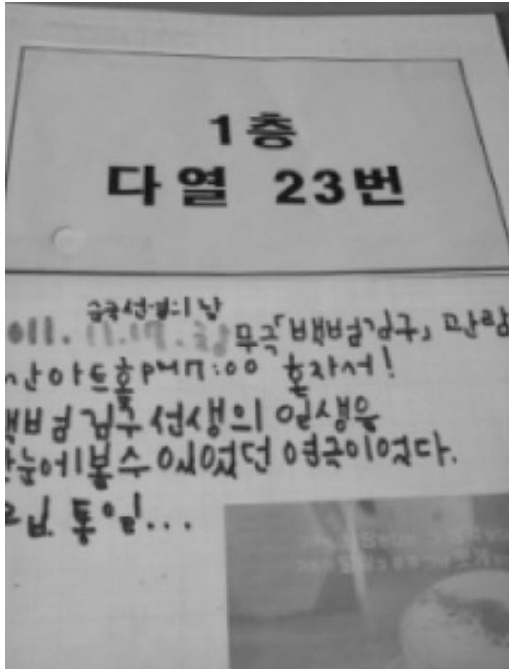 1층
다열 23번
순국선열의 날
011. 11. 17. 무극「백범김구」관람
아트홀 PM 7:00 혼자서!
백범 김구 선생의 일생을
한눈에 볼 수 있었던 연극이었다.
통일...